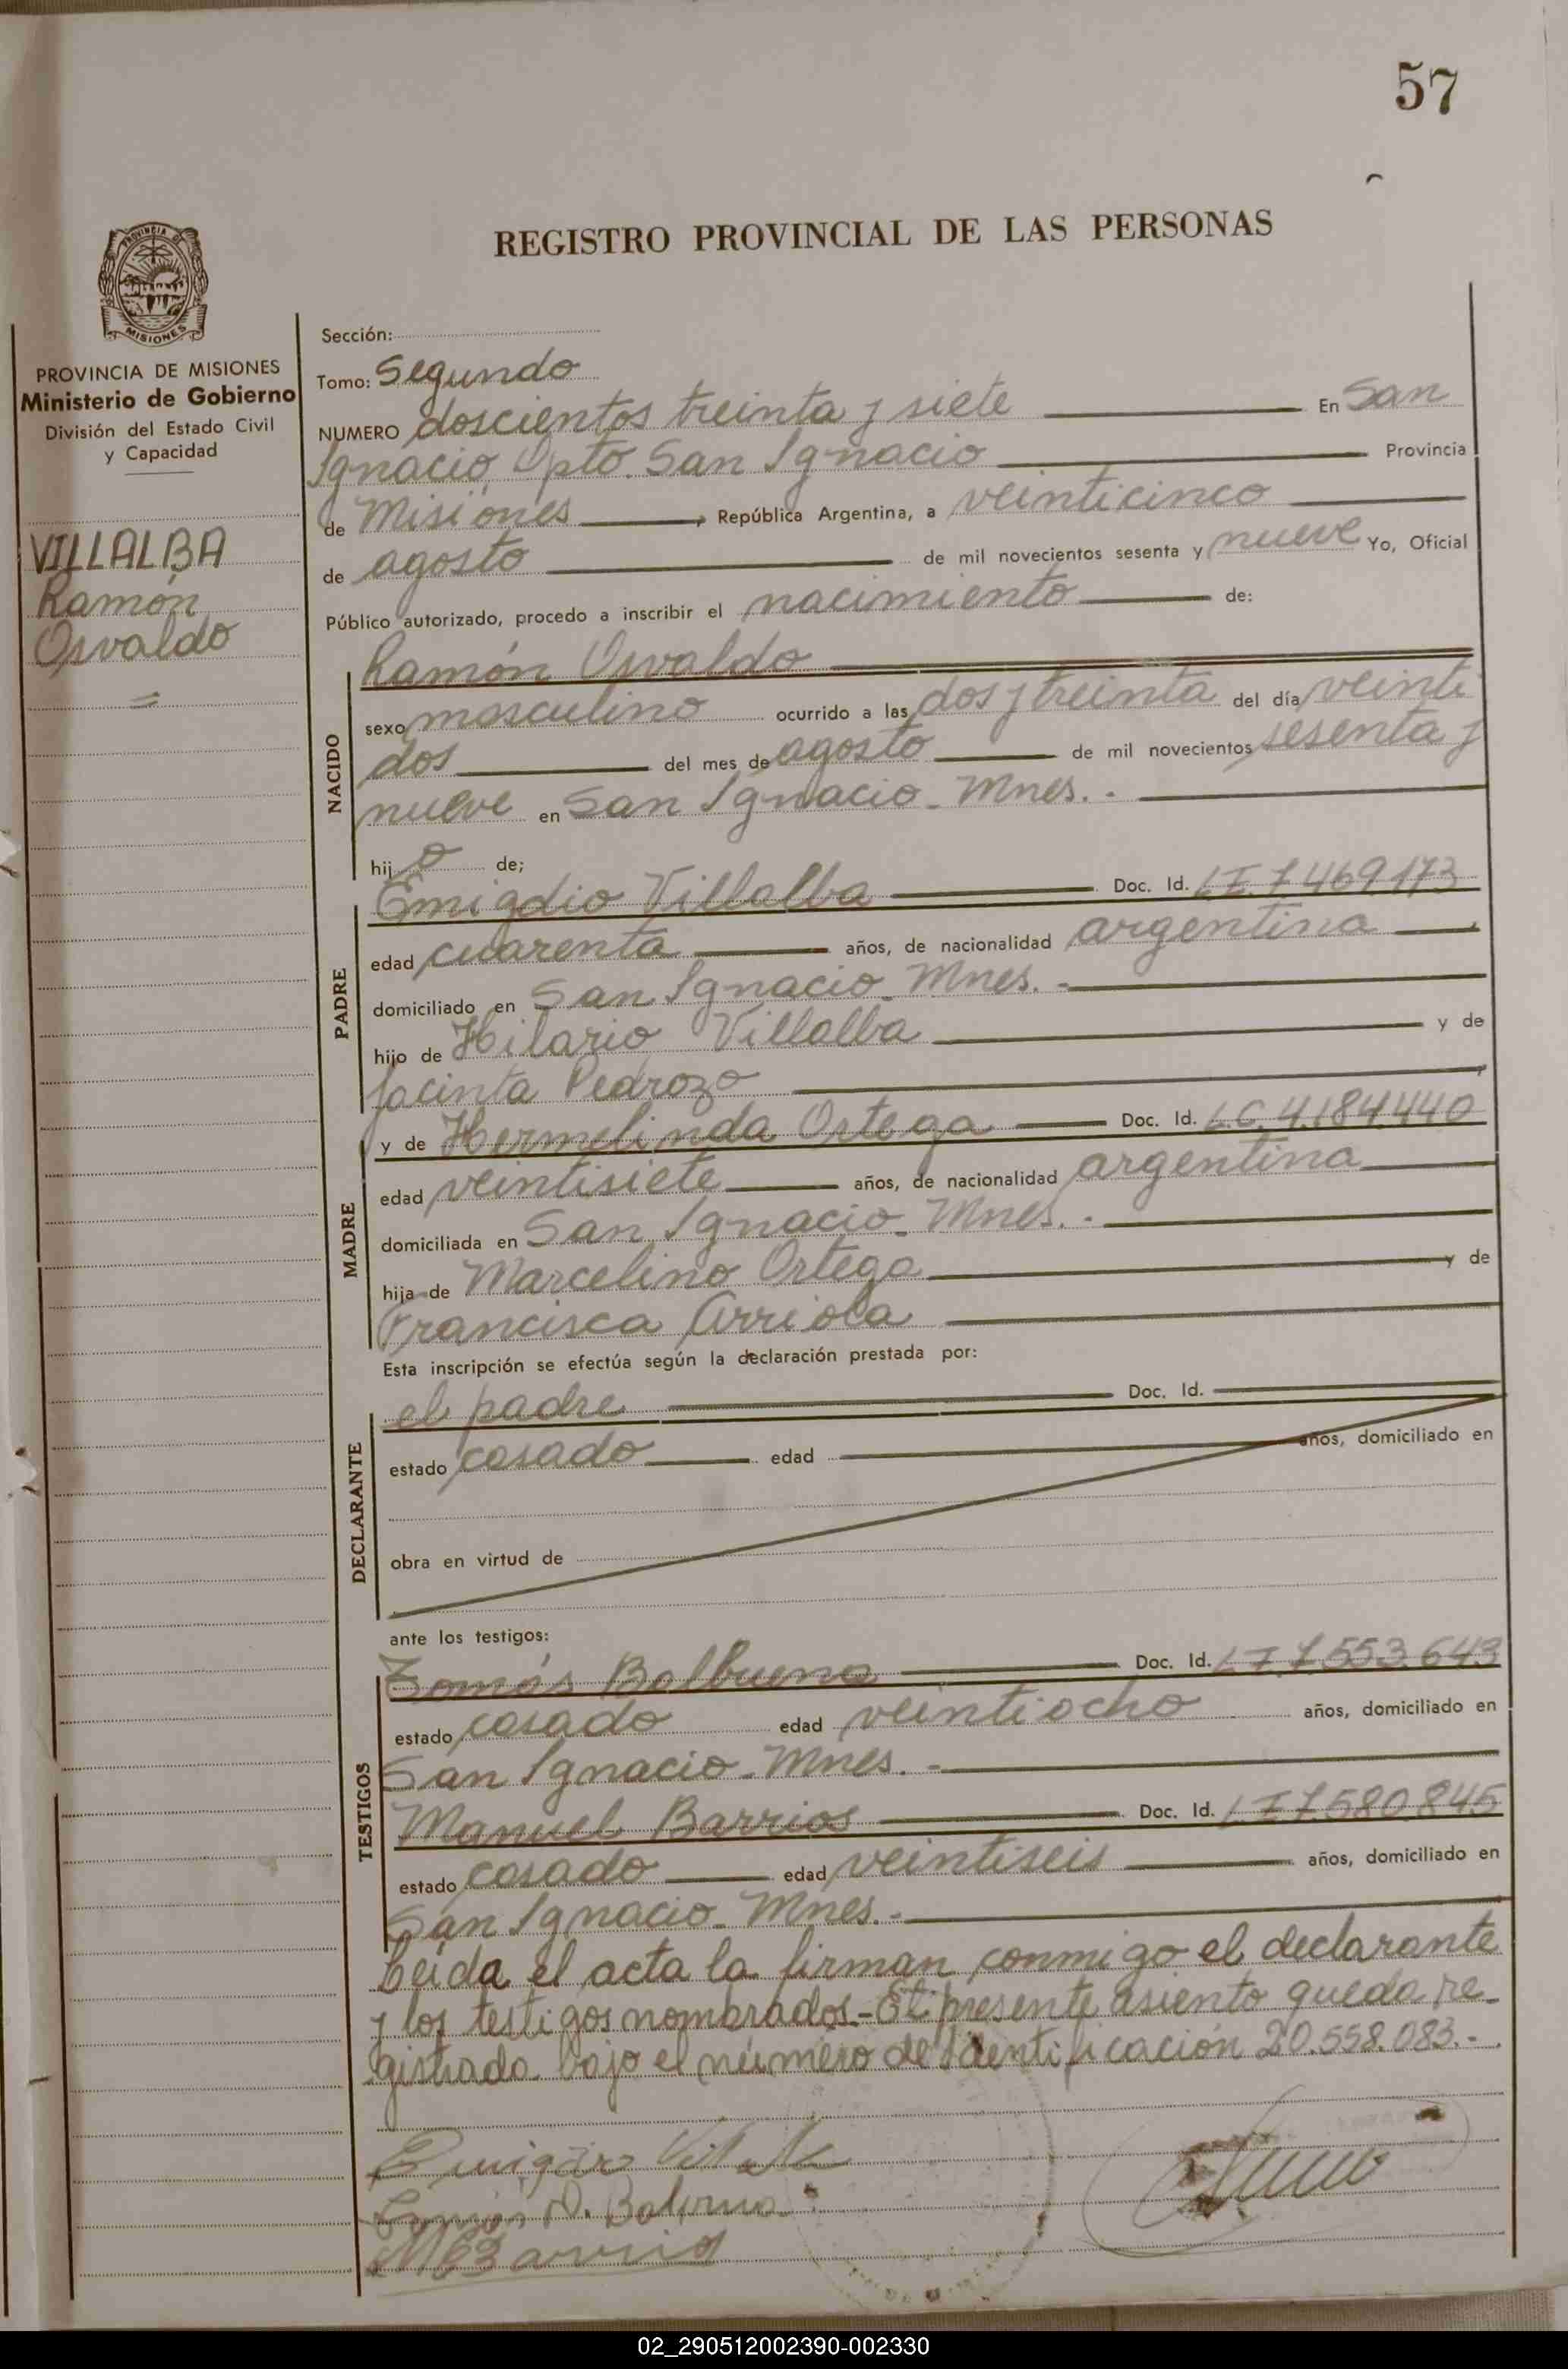 57
REGISTRO PROVINCIAL DE LAS PERSONAS
PROVINCIA DE MISIONES
Ministerio de Gobierno
División del Estado Civil
y Capacidad
VILLALBA
Ramón
Osvaldo
Sección:
Tomo: Segundo
NUMERO doscientos treinta y siete En San
Ignacio, Dpto. San Ignacio Provincia
de Misiones, República Argentina, a veinticinco
de agosto de mil novecientos sesenta y nueve Yo, Oficial
Público autorizado, procedo a inscribir el nacimiento de:
NACIDO
Ramón Osvaldo
sexo masculino ocurrido a las dos y treinta del día veinti
dos del mes de agosto de mil novecientos sesenta y
nueve en San Ignacio - Mnes. -
hijo de;
PADRE
Emigdio Villalba Doc. Id. L.E. 7.469.173
edad cuarenta años, de nacionalidad argentina,
domiciliado en San Ignacio - Mnes. -
hijo de Hilario Villalba y de
Jacinta Pedrozo,
MADRE
y de Hermelinda Ortega Doc. Id. L.C. 4.184.440
edad veintisiete años, de nacionalidad argentina
domiciliada en San Ignacio - Mnes. -
hija de Marcelino Ortega y de
Francisca Arriola
Esta inscripción se efectúa según la declaración prestada por:
DECLARANTE
el padre Doc. Id.
estado casado edad años, domiciliado en
obra en virtud de
ante los testigos:
TESTIGOS
Tomás Balbuena Doc. Id. L.E. 7.553.643
estado casado edad veintiocho años, domiciliado en
San Ignacio - Mnes. -
Manuel Barrios Doc. Id. L.E. 7.580.845
estado casado edad veintiseis años, domiciliado en
San Ignacio - Mnes. -
Leída el acta la firman conmigo el declarante
y los testigos nombrados.- El presente asiento queda re-
gistrado bajo el número de identificación 20.558.083.-
02_290512002390-002330